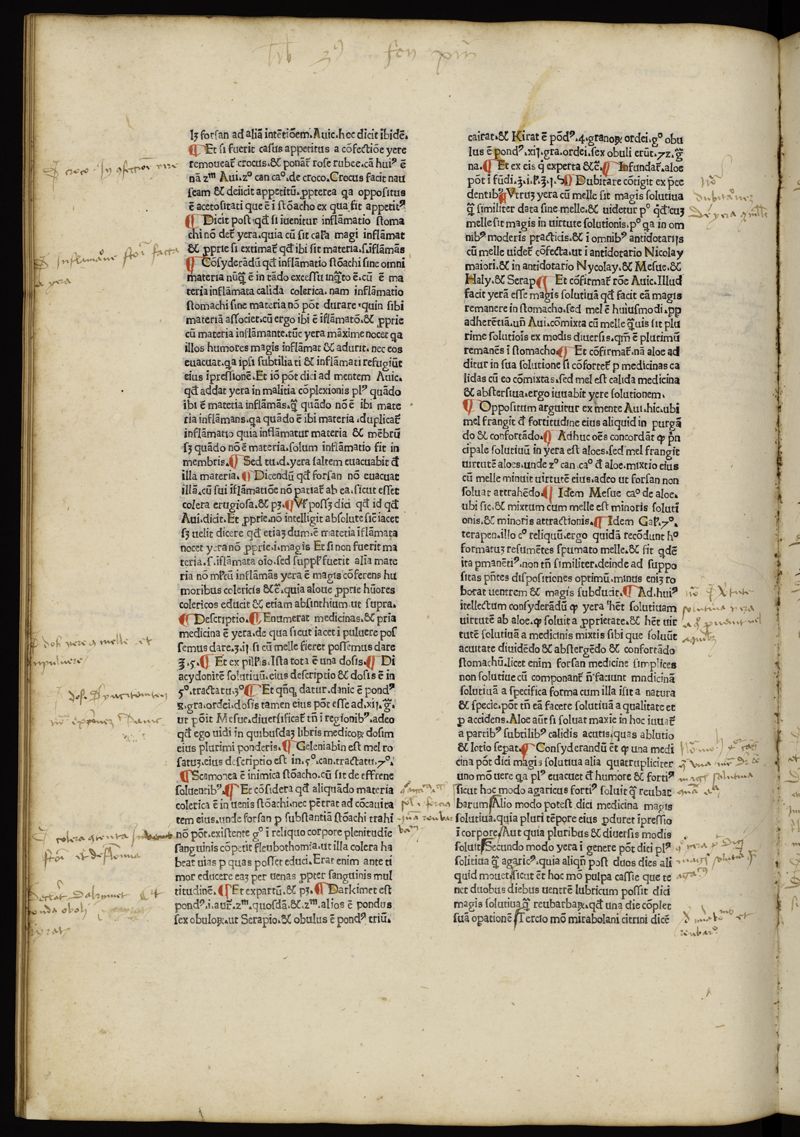 lib 3⁹ fen
lꝫ forsan ad aliā intētiōem. Auic. hec dicit ibidē.
¶ Et si fuerit casus appetitus a cōfectiōe yere
remoueat̉ crocus. & ponat̉ rose rubee. cā huiꝰ ē
nā 2ᵐ Aui. 2⁰ can caᵒ. de croco. Crocus facit nau
seam & deiicit appetitū. ꝓpterea qa oppositus
ē acetositati que ē i stōacho ex qua fit appetitꝰ
¶ Dicit post qđ si iuenitur inflāmatio stoma
chi nō det̉ yera. quia cū sit cal̄a magi inflāmat
& ꝓprie si extimat̉ qđ ibi sit materia. s. iflāmās
¶ Cōsyderādū qđ inflāmatio stōachi sine omni
materia nūꝗ̄ ē in tādo excessu inꝗ̄to ē. cū ē ma
teria inflāmata calida colerica. nam inflāmatio
stomachi sine materia nō pōt durare quin sibi
materiā associet. cū ergo ibi ē īflāmatō. & ꝓprie
cū materia inflāmante. tūc yera māxime nocet qa
illos humores magis inflāmat & adurit. nec eos
euacuat. qa ipsi subtiliati & inflāmati refugiūt
eius īpressionē. Et iō pōt dici ad mentem Auic.
qđ addat yera in malitia cōplexionis plꝰ quādo
ibi ē materia inflāmās. ꝗ̄ quādo nō ē ibi mate
ria inflāmans. qa quādo ē ibi materia. duplicat̉
inflāmatio quia inflāmatur materia & mēbrū
sꝫ quādo nō ē materia. solum inflāmatio fit in
membris. ¶ Sed tu. d. yera saltem euacuabit đ
illa materia. ¶ Dicendū qđ forsan nō euacuat
illā. cū sui īflāmatiōe nō patiat̉ ab ea. sicut esset
colera erugīosa. & pꝫ. ¶ Vl̉ possꝫ dici qđ id qđ
Aui. dicit. Et ꝓprie. nō intelligit absolute sic iacet
sꝫ uelit dicere qđ etiaꝫ dum. ē materia īflāmata
nocet yera nō ꝓprie. i. magis Et si non fuerit ma
teria. s. iflāmata oīo. sed supp̄ fuerit alia mate
ria nō ml̉tū inflāmās yera ē magis cōferens hu
moribus colericis &c̄. quia aloue ꝓprie hūores
colericos educit & etiam absinthium ut supra.
¶ Descriptio. ¶ Enumerat medicinas. & pria
medicina ē yera. de qua sicut iacet i puluere pos
semus dare. ʒ. ij si cū melle fieret possemus dare
ʒ. 5. ¶ Et ex pil̉. ſ. Ista tota ē una dosis. ¶ Di
acydonitē solutiuū. eius descriptio & dosis ē in
5⁰. tractatu. 3⁰ ¶ Et qñqꝫ datur. danic ē pondꝰ
8. gra. ordei. dosis tamen eius pōt esse ad. xij. ꝗ̄.
ut pōit Mesue. diuersificat̉ tñ i regionibꝰ. adeo
qđ ego uidi in quibusdaꝫ libris medicoꝝ dosim
eius plurimi ponderis. ¶ Geleniabin est mel ro
satuꝫ. eius descriptio est in. 5⁰. can. tractatu. 7⁰.
¶ Scamonea ē inimica stōacho. cū sit de effrene
soluentibꝰ. ¶ Et cōsidera qđ aliquādo materia
colerica ē in uenis stōachi. nec pētrat ad cōcauita
tem eius. unde forsan p substantiā stōachi trahi
nō pōt. existente g⁰ i reliquo corpore plenitudīe
sanguinis cōpetit fleubothomia. ut illa colera ha
beat uias p quas posset educi. Erat enim ante ti
mor educere eaꝫ per uenas ꝓpter sanguinis mul
titudinē. ¶ Et expartū. & pꝫ. ¶ Darkimet est
pondꝰ. i. aur̉. 2ᵐ. quosdā. &. 2ᵐ. alios ē pondus
sex obuloꝝ. ut Serapio. & obulus ē pondꝰ triū.
cairat. & Kirat ē pōdꝰ. 4. granoꝝ ordei. g⁰ obu
lus ē pondꝰ. xij. gra. ordei. sex obuli erūt. 72. ꝗ̄
na. ¶ Et ex eis q̄ experta &c̄. ¶ Infundat̉. aloe
pōt i fūdi. ʒ. i. ſ. ʒ. ij. ¶ Dubitare cōtigit ex p̄ce
dentibꝰ ¶ Vtruꝫ yera cū melle sit magis solutiua
ꝗ̄ similiter data sine melle. & uidetur p⁰ qđ cuꝫ
melle sit magis in uirtute solutionis. p⁰ qa in om
nibꝰ moderis practicis. & i omnibꝰ antidotarijs
cū melle uidet̉ cōfecta. ut i antidotario Nicolay
maiori. & in antidotario Nycolay. & Mesue. &
Haly. & Serap ¶ Et cōfirmat̉ rōe Auic. Illud
facit yerā esse magis solutiuā qđ facit eā magis
remanere in stomacho. sed mel ē huiusmodi. ꝓp
adherētiā. un̄ Aui. cōmixta cū melle ꝗuis sit plu
rime solutiōis ex modis diuersis. qm̄ ē plurimū
remanēs i stomacho ¶ Et cōfirmat̉. nā aloe ad
ditur in sua solutione si cōfortet̉ p medicinas ca
lidas cū eo cōmixtas. sed mel est calida medicina
& abstersiua. ergo iuuabit yere solutionem.
¶ Oppositum arguitur ex mente Aui. hic. ubi
mel frangit đ fortitudine eius aliquid in purgā
do & confortādo. ¶ Adhuc oēs concordāt ꝙ prī
cipale solutiuū in yera est aloes. sed mel frangit
uirtutē aloes. unde 2⁰ can. ca⁰ đ aloe. mixtio eius
cū melle minuit uirtutē eius. adeo ut forsan non
soluat attrahēdo. ¶ Idem Mesue ca⁰ de aloe.
ubi sic. & mixtum cum melle est minoris soluti
onis. & minoris attractionis. ¶ Idem Gal̉. 7⁰.
terapen. illo c⁰ reliquū. ergo quidā recōdunt h⁰
formatuꝫ resumētes spumato melle. & sit qdē
ita pmanēs. non tn̄ similiter. deinde ad suppo
sitas pn̄tes dispositiones optimū. minus eniꝫ ro
borat uentrem & magis subducit. ¶ Ad. huiꝰ
itellectum consyderādū ꝙ yera hēt solutiuam
uirtutē ab aloe. ꝙ soluit a ꝓprietate. & hēt uir
tutē solutiuā a medicinis mixtis sibi que soluūt
acuitate diuidēdo & abstergēdo & confortādo
stomachū. licet enim forsan medicine simplices
non solutiue cū componant̉ n̄ faciunt medicinā
solutiuā a specifica forma cum illa isit a natura
& specie. pōt tn̄ eā facere solutiuā a qualitate et
p accidens. Aloe aūt si soluat maxie in hoc iuuat̉
a partibꝰ subtilibꝰ calidis acutis. quas ablutio
& lotio separat. ¶ Consyderandū ē ꝙ una medi
cina pōt dici magis solutiua alia quatrupliciter
uno mō uere qa plꝰ euacuet đ humore & fortiꝰ
sicut hoc modo agaricus fortiꝰ soluit ꝗ̄ reubar
barum Alio modo potest dici medicina magis
solutiua. quia pluri tēpore eius pduret īpressio
i corpore Aut quia pluribus & diuersis modis
soluit Secundo modo yera i genere pōt dici plꝰ
solitiua ꝗ̄ agaricꝰ. quia aliqn̄ post duos dies ali
quid mouet sicut ēt hoc mo pulpa cassie que te
net duobus diebus uentrē lubricum possit dici
magis solutiua. ꝗ̄ reubarbaꝝ. qđ una die cōplet
suā opationē Tertio mō mirabolani citrini dicē